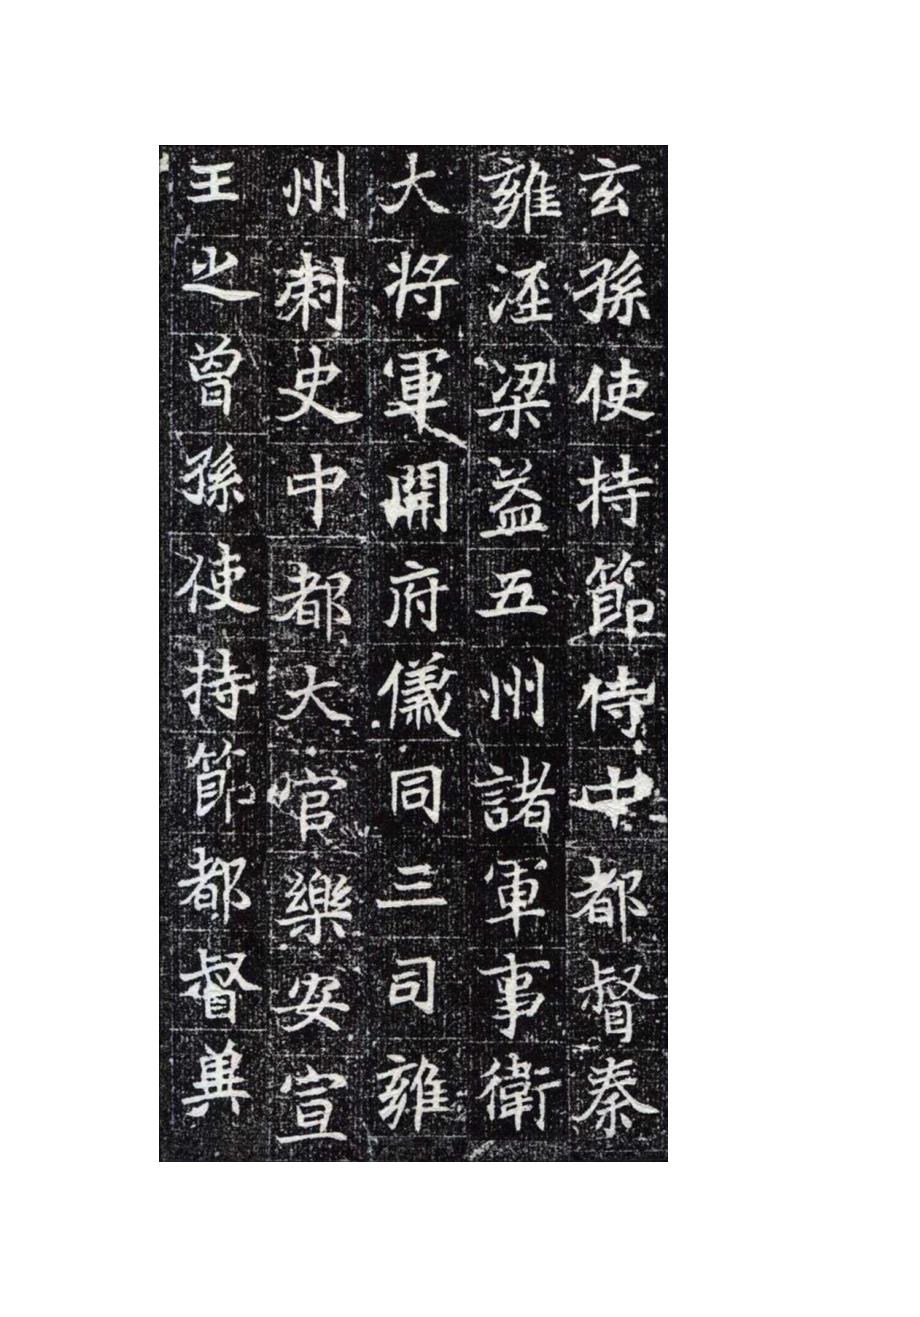 玄孫使持節侍中都督秦
雍涇梁益五州諸軍事衛
大将軍開府儀同三司雍
州刺史中都大官樂安宣
王之曾孫使持節都督冀